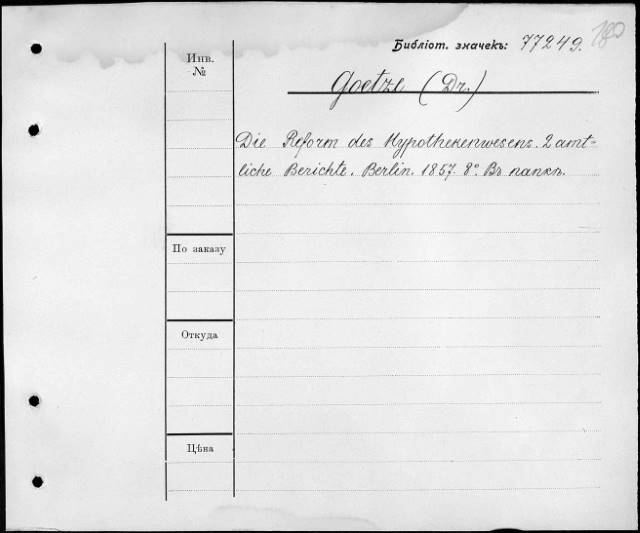 Библіот. значекъ: 77249. 180
Инв.
№
Goetze (Dr.)
Die Reform des Hypothekenwesens. 2 amt-
liche Berichte. Berlin. 1857. 8°. Въ папкѣ.
По заказу
Откуда
Цѣна